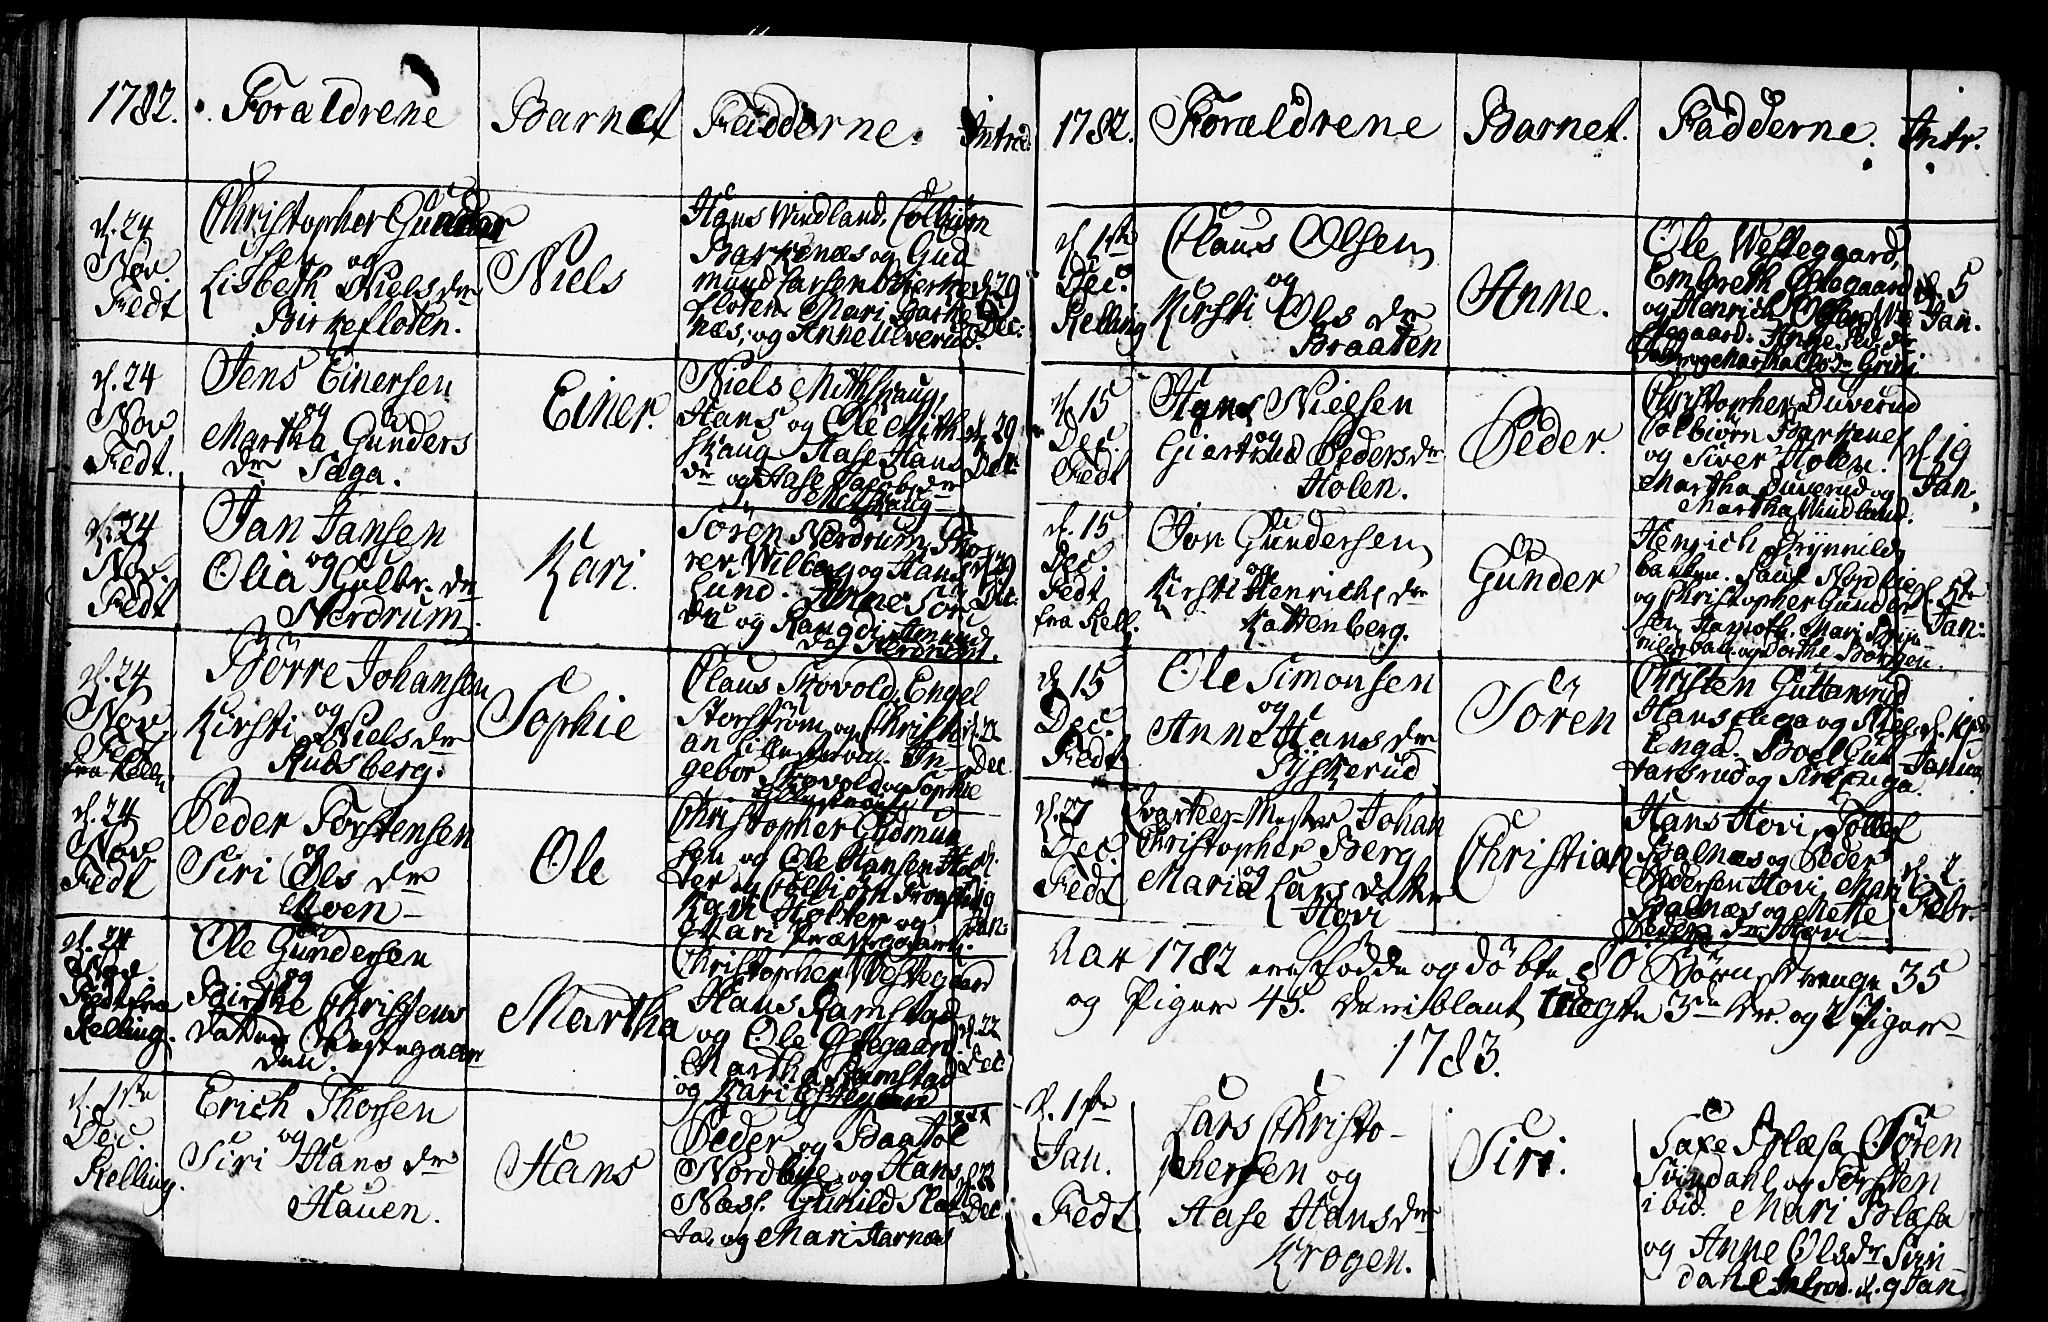 1782. Forældrene Barnet Fadderne. Introd:
d. 24
Nov
Fedt
Christopher Gunder
sen og
Lisbeth Nielsdr
Birkefloten.
Niels
Hans Windland, Colbiørn
Barkenæs og Gud
mund Larsen Birke
floten. Mari Barke
næs, og Anne Ulverud.
d. 29
Dec:
d. 24
Nov
Fedt.
Jens Einersen
og
Martha Gunders
dr Sæga.
Einer.
Niels Mithskaug,
Hans og Ole Mith
skaug. Aase Hans
dr og Aase Jacobsdr
Mithskaug
d. 29
Dec:
d. 24
Nov.
Fedt
Jan Jansen
og
Olia Hulbr. dr
Nerdrum.
Kari.
Sören Nerdrum,
og Hans
lund. Anne
og Rangdi
Nerdrum.
d. 29
Dec:
d. 24
Nov
Fedt
fra Kelli.
Börre Johansen
og
Kirsti Niels dr
Rudsberg.
Sophie
Claus Skovold, Engel
Storström og Christi
an Lillestrøm. In
gebor Skovold og Sophie
d. 22
Dec.
d. 24
Nov.
Fedt
Peder Torstensen
og
Siri Ols dr
Moen
Ole
Christopher Gudmun
sen og Ole Hansen Hol
ter og Colbiörn Frogner
Kari Holter og
Mari Præstegaard.
d.
19
Jan:
d. 24
Nov.
Fedt fra
Kelling.
Ole Gundersen
og
Birthe Christens
datter Vestegaar
den.
Martha
Christopher Vestegaard
Hans Ramstad
og Ole Østegaard
Martha Ramstad
og Kari Østegaard
d. 22
Dec
d. 1ste
Dec.
Kelling.
Erich Thorsen
og
Siri Hans dr
Hauen.
Hans
Peder og Baatol
Nordbye, og Hans
Næs. Gunild
og Mari Aarnæs
d. 22
Dec
1782. Forældrene Barnet. Fadderne. Intr.
d. 1ste
Dec.
Kelling
Claus Olsen,
og
Kirsti Ols dr
Braaten
Anne.
Ole Westegaard,
Embreth Østegaard
og Henrich Olsen We
stegaard. Anne
og Martha
d. 5
Jan.
d. 15
Dec.
Fedt
Hans Nielsen
og
Giertrud Pedersdr
Holen.
Peder.
Christopher Duverud
Colbiörn Barkenes
og Siver Holen.
Martha Duverud og
Martha Windland.
d. 19
Jan.
d. 15
Dec.
Fedt
fra Kell.
Jon Gundersen,
og
Kirsti Henrichs dr
Kattenberg.
Gunder
Henrich Brynnild
bakken. Paul Nordlie
og Christopher Gunder
sen Mari Bryn
nildsbak. og Dorthe Børgen.
d. 5te
Jan:
d. 15
Dec.
Fedt.
Ole Simonsen
og
Anne Hans dr
Syskerud
Sören
Christen Guttersrud
Hans Enga og Niels
Enga. Boel Gut
tarsrud og Siri Enga.
Janua
d. 27
Dec.
Fedt
Qvarteer-Mester Johan
Christopher Berg
og
Maria Lars datter
Hovi
Christian
Hans Hovi, Tollef
Balnæs og Peder
Pedersen Hovi, Mari
Balnæs og Mette
Peders dr Hovi
d. 2.
Febr.
Aar 1782 ere fødde og döbte 80 Börn, Drenge 35
og Piger 45. deriblant uægte 3 Dr. og 2 Piger
1783.
d. 1ste
Jan.
Fedt.
Lars Christo-
phersen og
Aase Hansdr
Krogen.
Siri.
Saxe Blæsa Sören
Svindahl og Torsten
ibid. Mari Blæsa
og Anne Olsdr Svin
dahl Introd. d. 9 Jan.